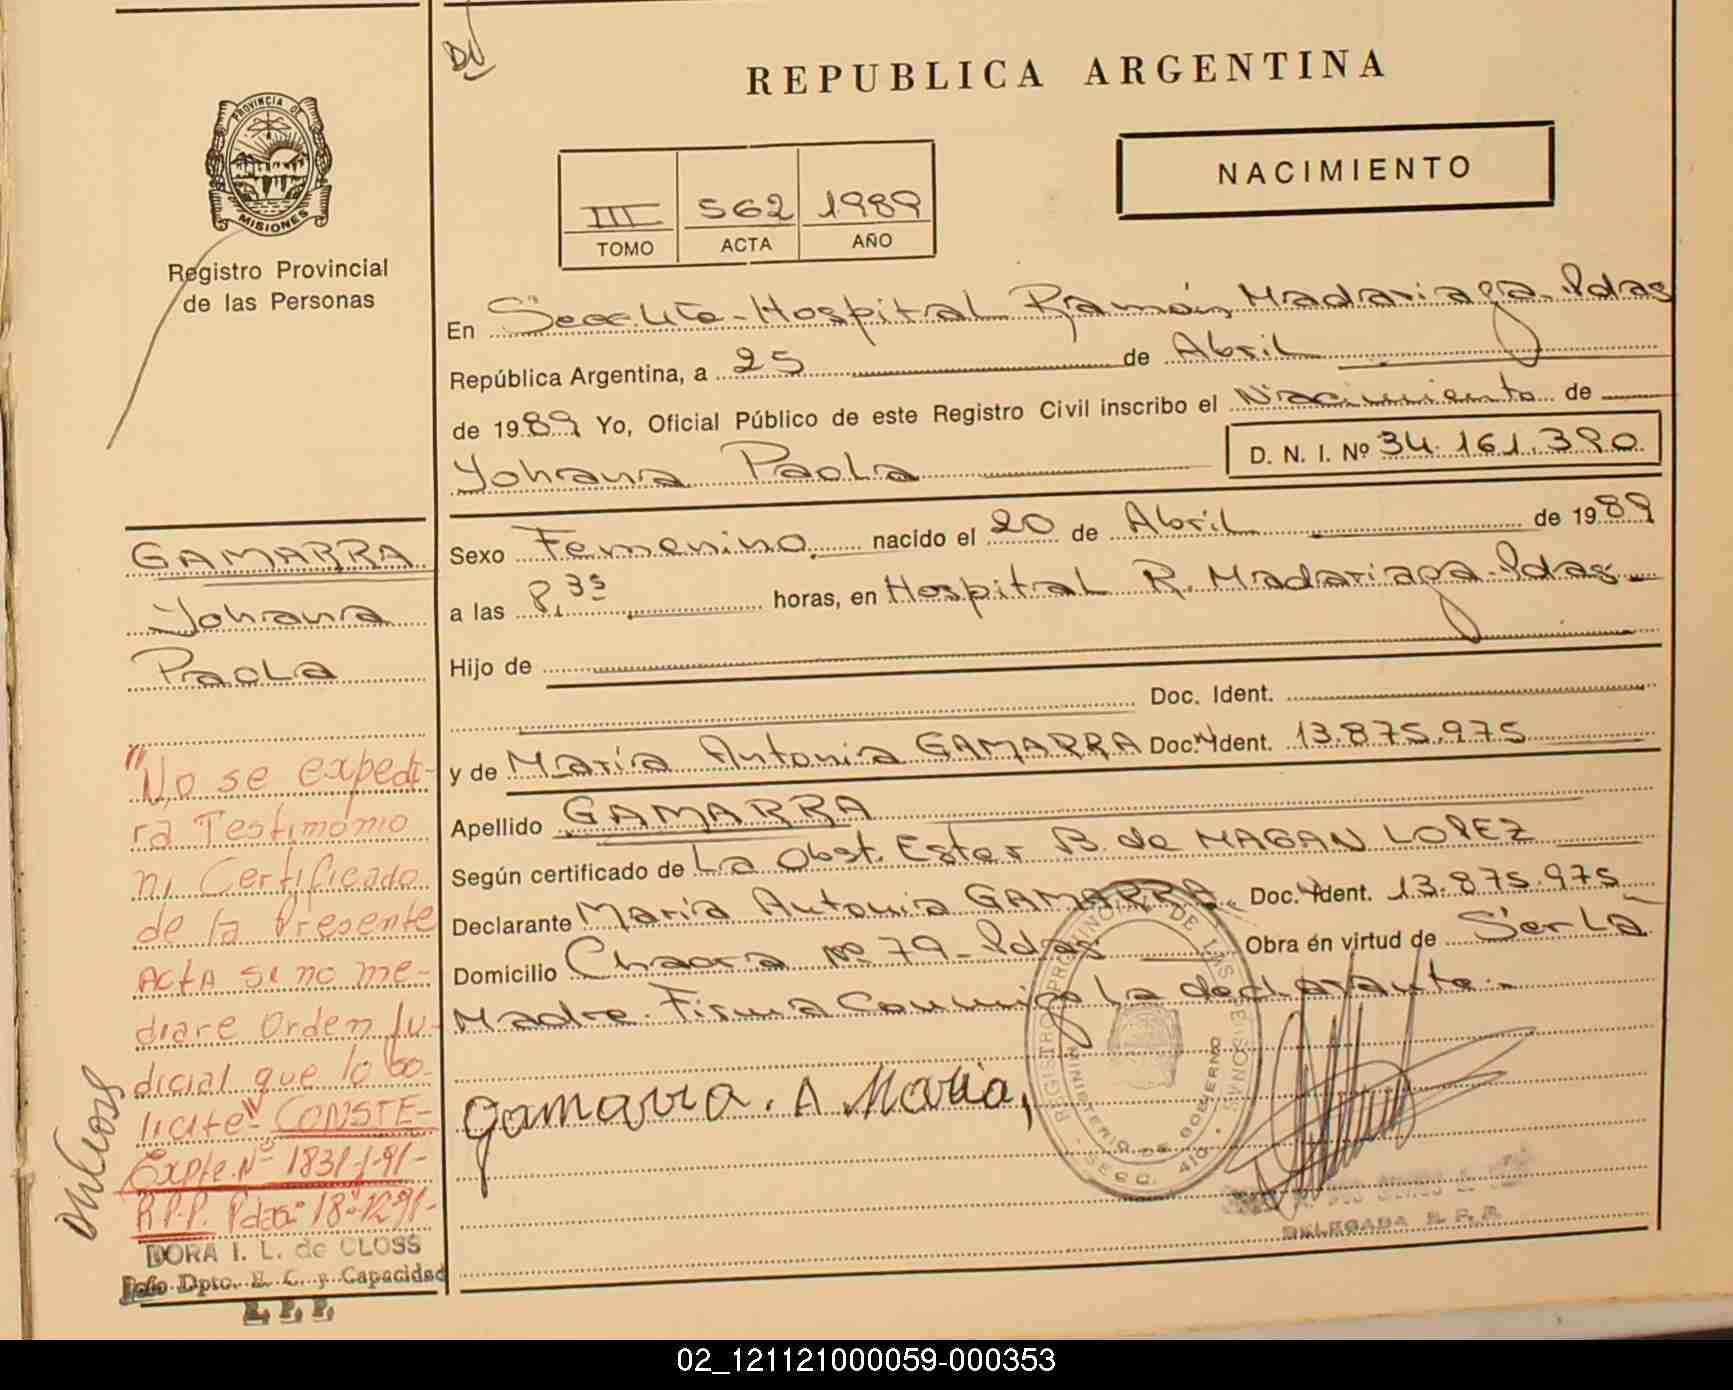 DV
REPUBLICA ARGENTINA
PROVINCIA DE
MISIONES
Registro Provincial
de las Personas
NACIMIENTO
III 562 1989
TOMO ACTA AÑO
En Secc. Hospital Ramón Madariaga-Pdas
República Argentina, a 25 de Abril
de 1989 Yo, Oficial Público de este Registro Civil inscribo el Nacimiento de
Yohana Paola D. N. I. Nº 34.161.390
Sexo Femenino nacido el 20 de Abril de 1989
a las 8,35 horas, en Hospital R. Madariaga-Pdas-
Hijo de
Doc. Ident.
y de María Antonia GAMARRA Doc. Ident. 13.875.975
Apellido GAMARRA
Según certificado de La Obst. Ester B. de MAGAN LOPEZ
Declarante María Antonia GAMARRA Doc. Ident. 13.875.975
Domicilio Chacra Nº 79- Pdas Obra én virtud de Ser La
Madre. Firma Conmigo La declarante.-
Gamarra. A Maria,
REGISTRO PROVINCIAL DE LAS PERSONAS
MINISTERIO DE GOBIERNO
SECC. 4/0
DELEGADA R. P. P.
GAMARRA
Yohana
Paola
"No se expedi-
ra Testimonio
ni Certificado
de la Presente
ACtA si no me-
diare Orden Ju-
dicial que lo so-
licite" CONSTE-
Expte. Nº 1831-J-91-
R.P.P. Pdas- 18-12-91-
DORA I. L. de CLOSS
Jefe Dpto. E. C. y Capacidad
R. P. P.
02_121121000059-000353